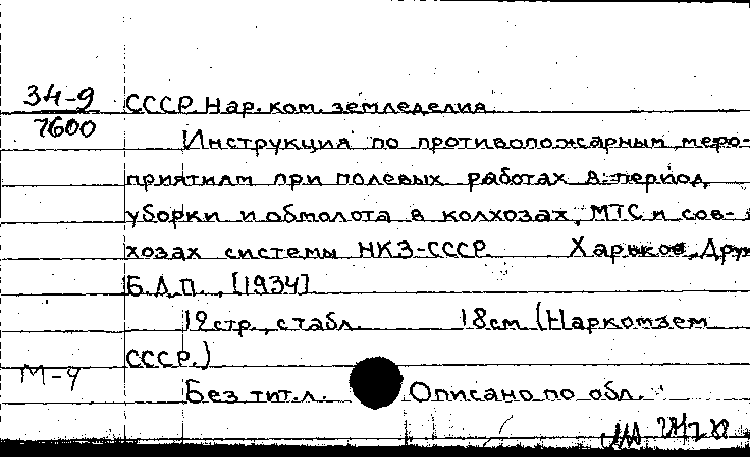 34-9
7600
СССР. Нар. ком. земледелия
Инструкция по противопожарным меро-
приятиям при полевых работах в период
уборки и обмолота в колхозах, МТС и сов-
хозах системы НКЗ-СССР. Харьков, Друк
Б.Л.П., [1934]
12 стр., с табл. 18 см (Наркомзем
СССР.)
М-4
Без тит. л. Описано по обл.